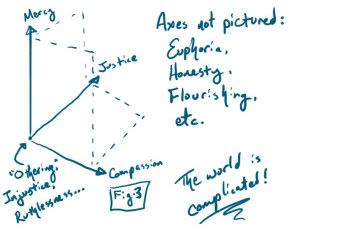 Mercy
Justice
Compassion
"Othering,"
Injustice,
Ruthlessness...
Fig. 3
Axes not pictured:
Euphoria,
Honesty,
Flourishing,
etc.
The world is
complicated!